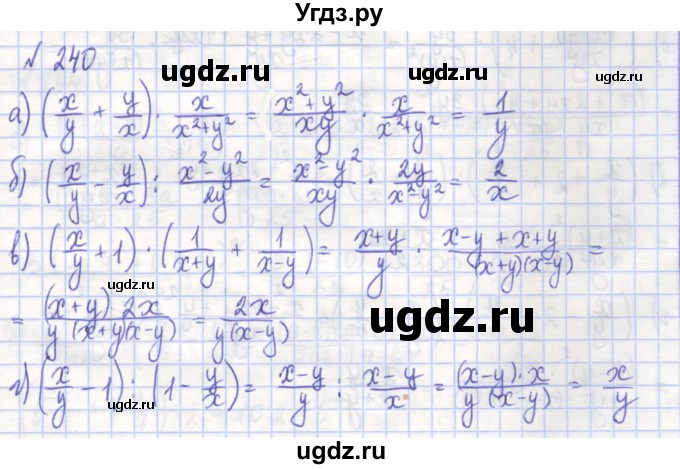 Угдз.ру
№ 240
ugdz.ru
ugdz.ru
а) (x/y + y/x) · x/(x²+y²) = (x²+y²)/(xy) · x/(x²+y²) = 1/y
б) (x/y − y/x) : (x²−y²)/(2y) = (x²−y²)/(xy) · 2y/(x²−y²) = 2/x
в) (x/y + 1) · (1/(x+y) + 1/(x−y)) = (x+y)/y · (x−y+x+y)/((x+y)(x−y)) =
= ((x+y) 2x)/(y (x+y)(x−y)) = 2x/(y(x−y))
ugdz.ru
ugdz.ru
г) (x/y − 1) : (1 − y/x) = (x−y)/y : (x−y)/x = ((x−y)·x)/(y (x−y)) = x/y
ugdz.ru